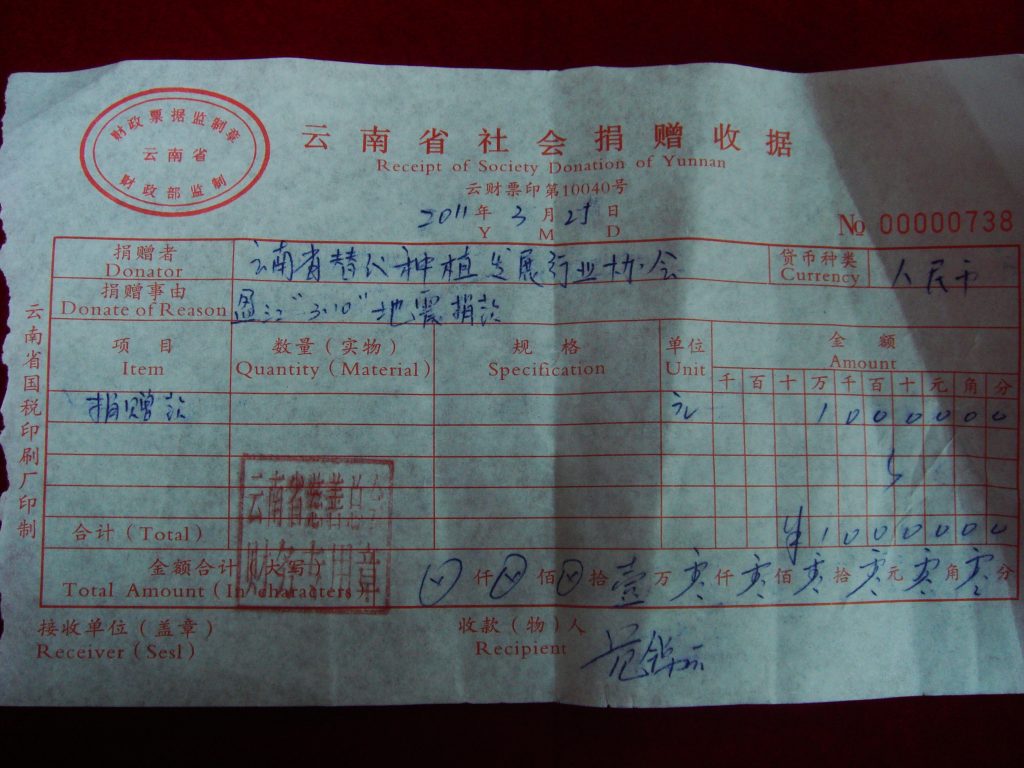 财政票据监制章
云南省
财政部监制
云南省社会捐赠收据
Receipt of Society Donation of Yunnan
云财票印第10040号
2011年 3月 25日
Y M D
№ 00000738
捐赠者 云南省替代种植发展行业协会 货币种类 人民币
Donator Currency
捐赠事由 盈江"3.10"地震捐款
Donate of Reason
项目 数量（实物） 规格 单位 金额
Item Quantity (Material) Specification Unit Amount
千 百 十 万 千 百 十 元 角 分
捐赠款 元 1 0 0 0 0 0 0
合计（Total） ¥ 1 0 0 0 0 0 0
金额合计（大写） 仟 佰 拾 壹 万 零 仟 零 佰 零 拾 零 元 零 角 零 分
Total Amount (In characters)
云南省慈善总会
财务专用章
接收单位（盖章） 收款（物）人
Receiver (Sesl) Recipient
云南省国税印刷厂印制